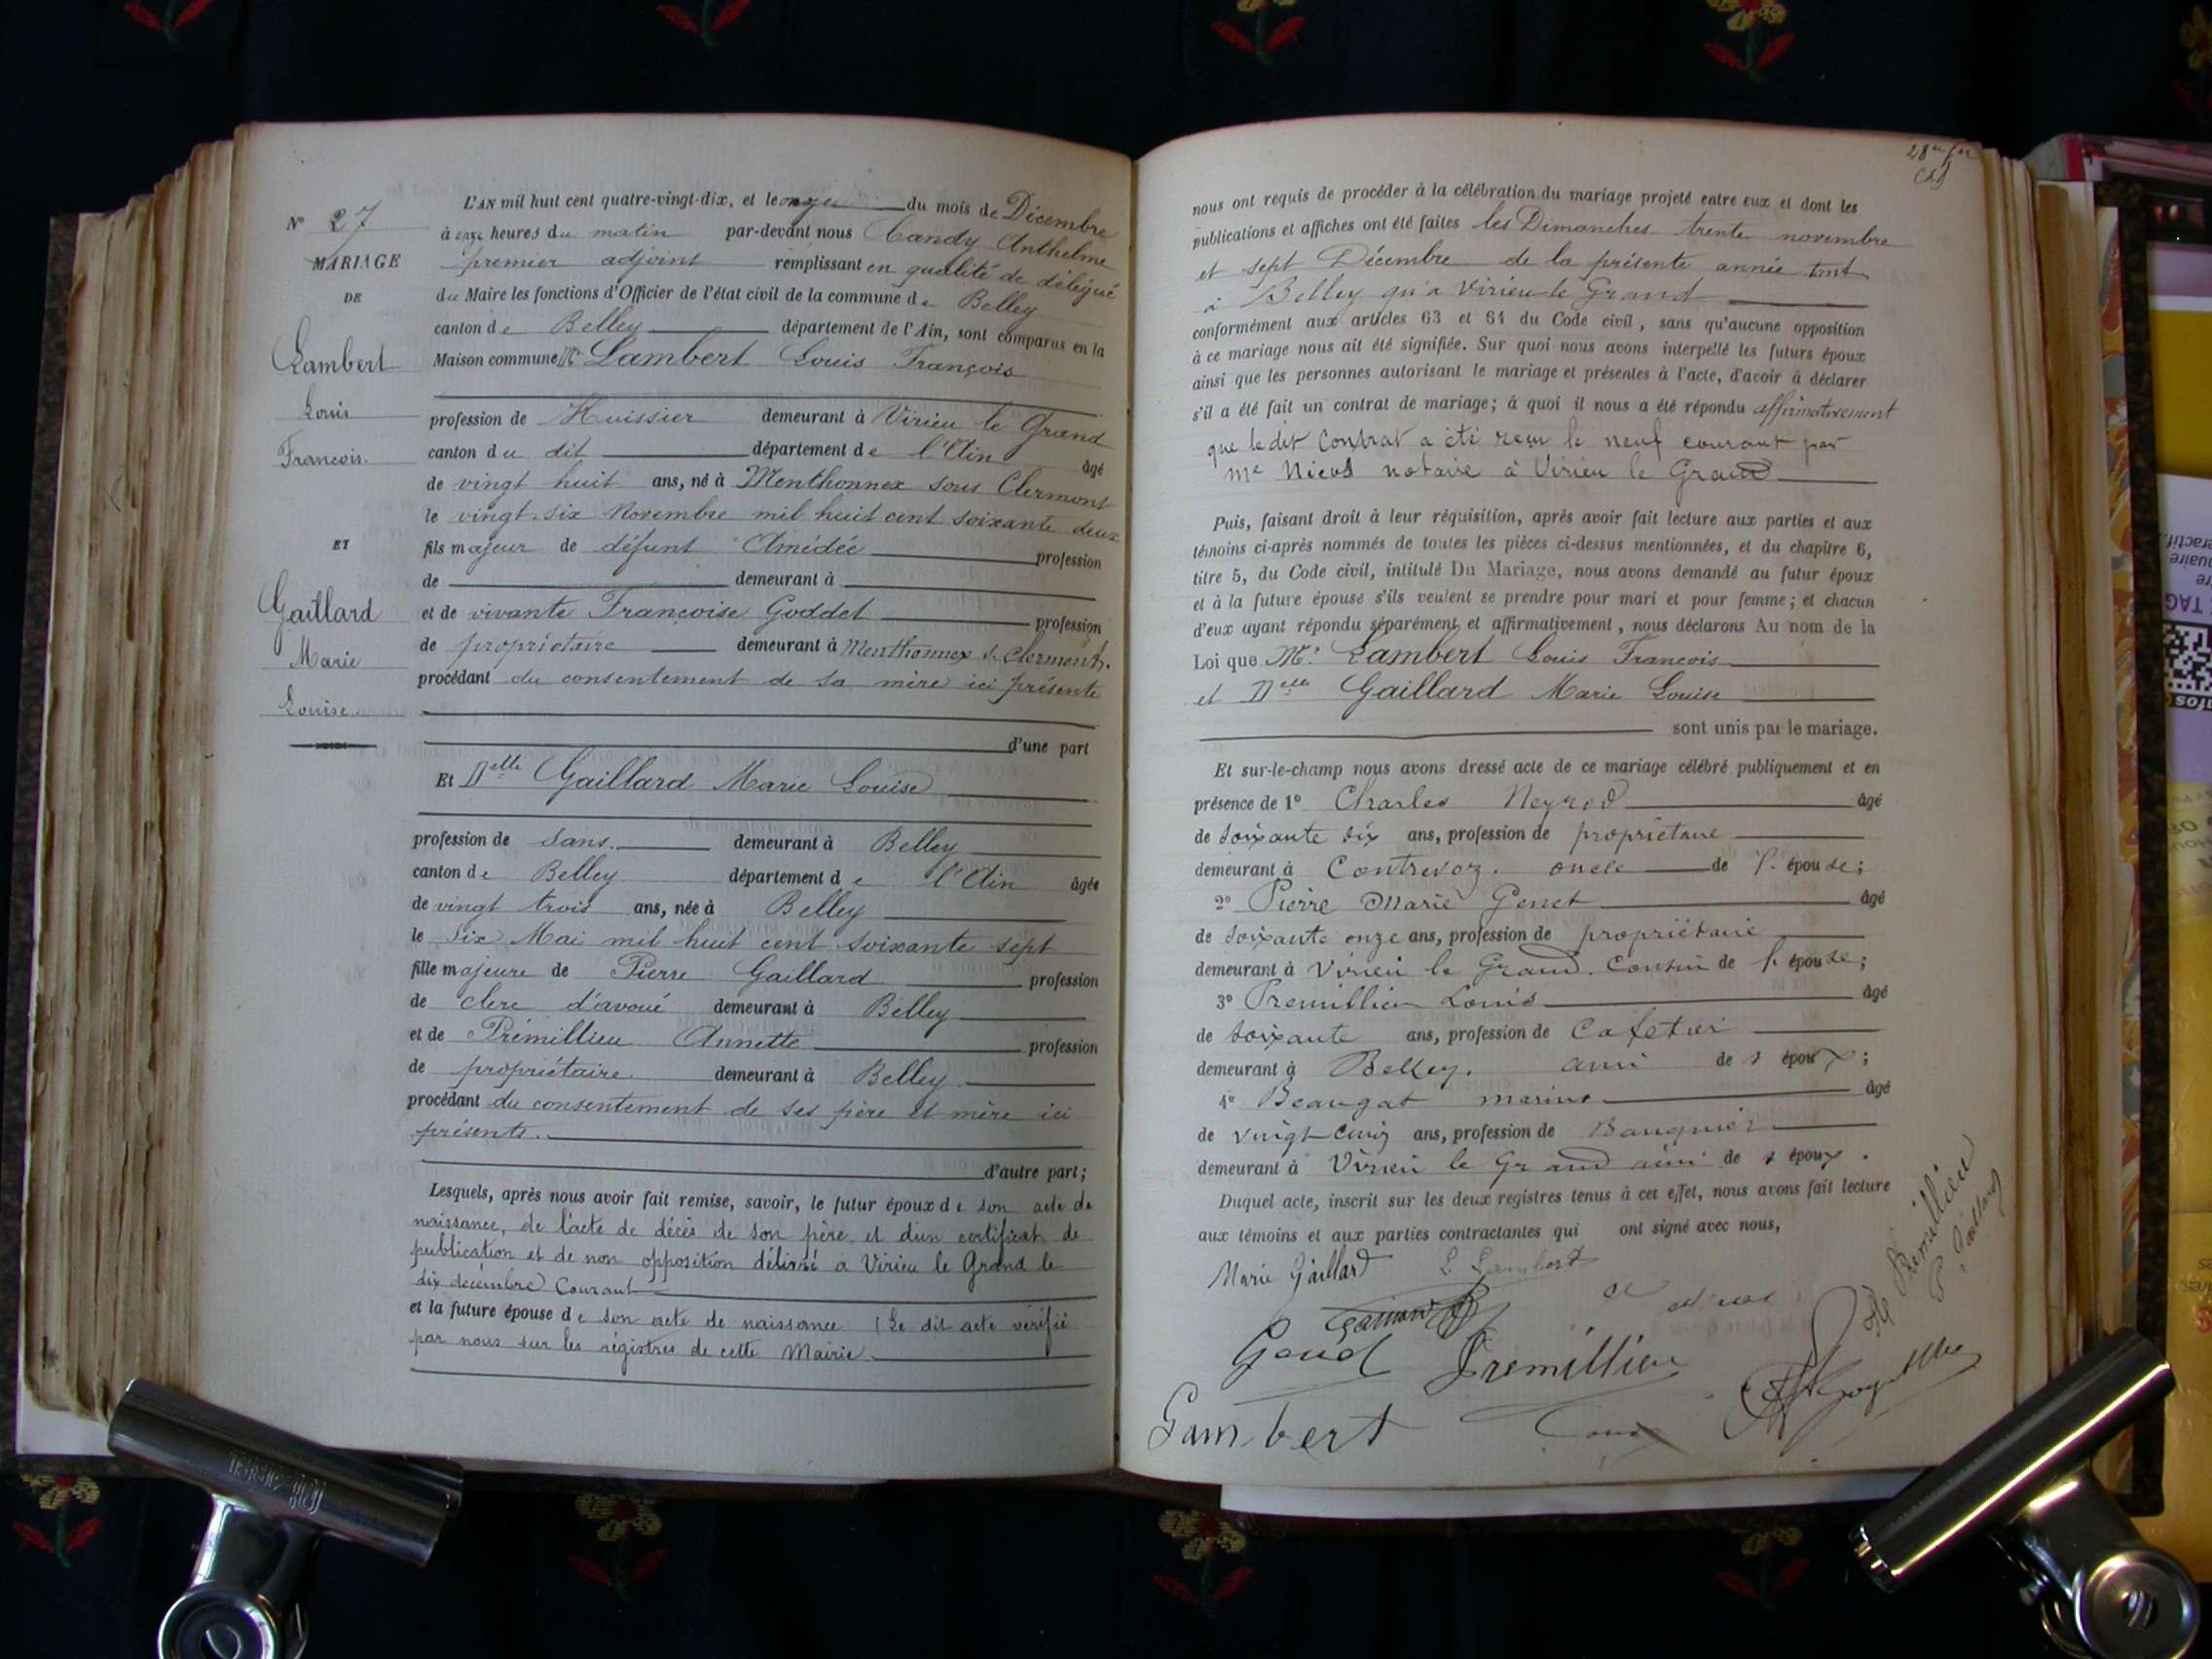 N° 27
MARIAGE
DE
Lambert
Louis
François
ET
Gaillard
Marie
Louise
L'AN mil huit cent quatre-vingt-dix, et le onze du mois de Décembre
à onze heures du matin par-devant nous Candy Anthelme
premier adjoint remplissant en qualité de délégué
du Maire les fonctions d'Officier de l'état civil de la commune de Belley
canton de Belley département de l'Ain, sont comparus en la
Maison commune Mr Lambert Louis François
profession de Huissier demeurant à Virieu le Grand
canton du dit département de l'Ain âgé
de vingt huit ans, né à Menthonnex sous Clermont
le vingt-six Novembre mil huit cent soixante deux
fils majeur de défunt Amédée profession
de demeurant à
et de vivante Françoise Goddet profession
de propriétaire demeurant à Menthonnex s. Clermont.
procédant du consentement de sa mère ici présente
d'une part
Et Delle Gaillard Marie Louise
profession de sans. demeurant à Belley
canton de Belley département de l'Ain âgée
de vingt trois ans, née à Belley
le six Mai mil huit cent soixante sept
fille majeure de Pierre Gaillard profession
de clerc d'avoué demeurant à Belley
et de Prémillieu Annette profession
de propriétaire demeurant à Belley
procédant du consentement de ses père et mère ici
présents.
d'autre part;
Lesquels, après nous avoir fait remise, savoir, le futur époux de son acte de
naissance, de l'acte de décès de son père, et d'un certificat de
publication et de non opposition délivré à Virieu le Grand le
dix décembre Courant
et la future épouse de son acte de naissance (Le dit acte vérifié
par nous sur les régistres de cette Mairie.
28e
nous ont requis de procéder à la célébration du mariage projeté entre eux et dont les
publications et affiches ont été faites les Dimanches trente novembre
et sept Décembre de la présente année tant
à Belley qu'à Virieu le Grand
conformément aux articles 63 et 64 du Code civil, sans qu'aucune opposition
à ce mariage nous ait été signifiée. Sur quoi nous avons interpellé les futurs époux
ainsi que les personnes autorisant le mariage et présentes à l'acte, d'avoir à déclarer
s'il a été fait un contrat de mariage; à quoi il nous a été répondu affirmativement
que le dit Contrat a été reçu le neuf courant par
Me Nicod notaire à Virieu le Grand
Puis, faisant droit à leur réquisition, après avoir fait lecture aux parties et aux
témoins ci-après nommés de toutes les pièces ci-dessus mentionnées, et du chapitre 6,
titre 5, du Code civil, intitulé Du Mariage, nous avons demandé au futur époux
et à la future épouse s'ils veulent se prendre pour mari et pour femme; et chacun
d'eux ayant répondu séparément et affirmativement, nous déclarons Au nom de la
Loi que Mr. Lambert Louis François
et Delle Gaillard Marie Louise
sont unis par le mariage.
Et sur-le-champ nous avons dressé acte de ce mariage célébré publiquement et en
présence de 1° Charles Neyrod âgé
de soixante six ans, profession de propriétaire
demeurant à Contrevoz. oncle de l'épouse;
2° Pierre Marie Genet âgé
de soixante onze ans, profession de propriétaire
demeurant à Virieu le Grand. Cousin de l'épouse;
3° Premillieu Louis âgé
de soixante ans, profession de Cafetier
demeurant à Belley. ami de l'époux;
4° Beaugat âgé
de vingt-cinq ans, profession de Banquier
demeurant à Virieu le Grand ami de l'époux.
Duquel acte, inscrit sur les deux registres tenus à cet effet, nous avons fait lecture
aux témoins et aux parties contractantes qui ont signé avec nous,
Marie Gaillard L. Lambert
Premillieu
P. Gaillard
Premillieu
Lambert